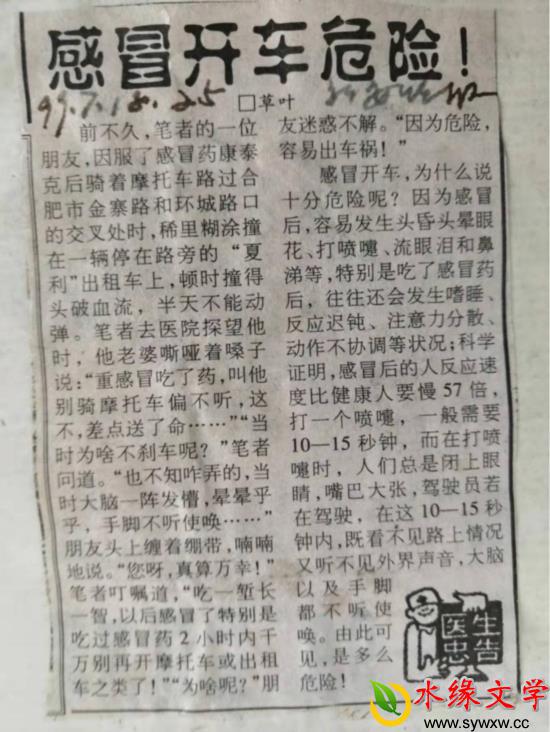 感冒开车危险！
□草叶
前不久，笔者的一位
朋友，因服了感冒药康泰
克后骑着摩托车路过合
肥市金寨路和环城路口
的交叉处时，稀里糊涂撞
在一辆停在路旁的“夏
利”出租车上，顿时撞得
头破血流，半天不能动
弹。笔者去医院探望他
时，他老婆嘶哑着嗓子
说：“重感冒吃了药，叫他
别骑摩托车偏不听，这
不，差点送了命……”“当
时为啥不刹车呢？”笔者
问道。“也不知咋弄的，当
时大脑一阵发懵，晕晕乎
乎，手脚不听使唤……”
朋友头上缠着绷带，喃喃
地说。“您呀，真算万幸！”
笔者叮嘱道，“吃一堑长
一智，以后感冒了特别是
吃过感冒药2小时内千
万别再开摩托车或出租
车之类了！”“为啥呢？”朋
友迷惑不解。“因为危险，
容易出车祸！”
感冒开车，为什么说
十分危险呢？因为感冒
后，容易发生头昏头晕眼
花、打喷嚏、流眼泪和鼻
涕等，特别是吃了感冒药
后，往往还会发生嗜睡、
反应迟钝、注意力分散、
动作不协调等状况；科学
证明，感冒后的人反应速
度比健康人要慢57倍，
打一个喷嚏，一般需要
10—15秒钟，而在打喷
嚏时，人们总是闭上眼
睛，嘴巴大张，驾驶员若
在驾驶，在这10—15秒
钟内，既看不见路上情况
又听不见外界声音，大脑
以及手脚
都不听使
唤。由此可
见，是多么
危险！
医生
忠告
水缘文学
www.sywxw.cc